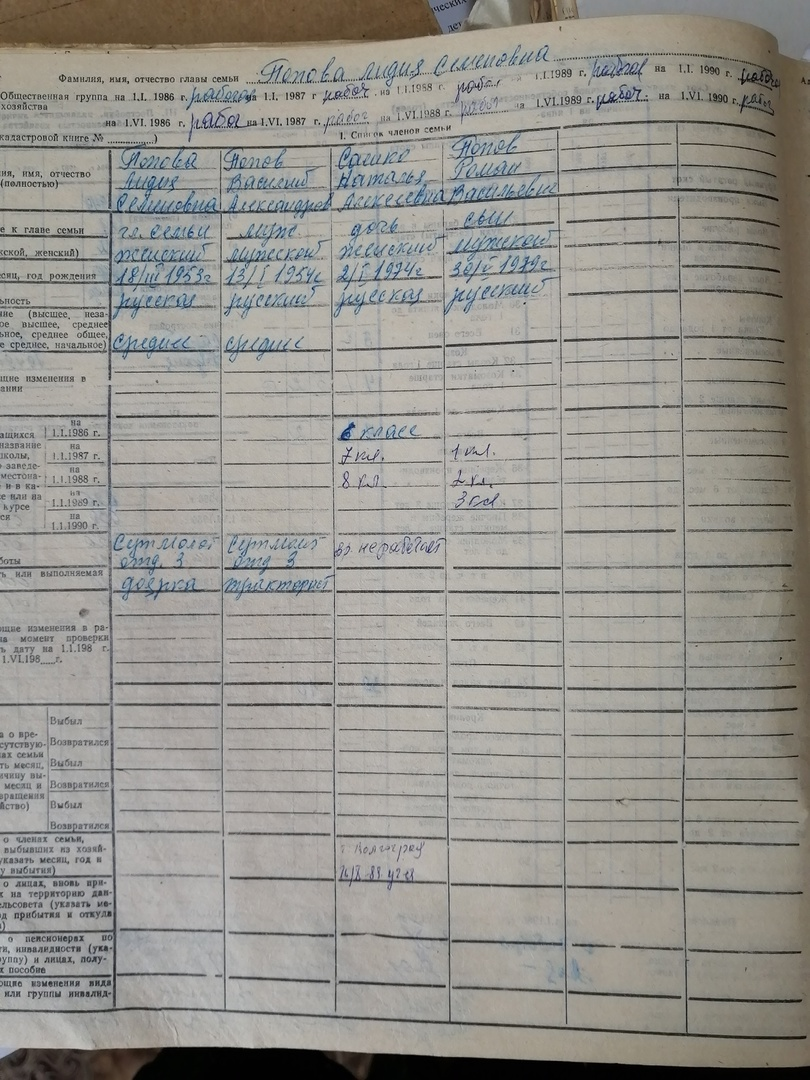 ческих
дет
Фамилия, имя, отчество главы семьи Попова Лидия Семеновна
Общественная группа на 1.I. 1986 г. рабочая на 1.I. 1987 г. рабоч. на 1.I.1988 г. рабо. 1.I.1989 г. рабочая на 1.I. 1990 г. рабоча
хозяйства
на 1.VI. 1986 г. рабоч на 1.VI.1987 г. рабоч на 1.VI.1988 г. рабоч 1.VI.1989 г. рабоч. на 1.VI. 1990 г. рабоч
кадастровой книге № )
1. Список членов семьи
ия, имя, отчество (полностью)
Попова Лидия Семеновна
Попов Василий Александров
Сашко Наталья Алексеевна
Попов Роман Васильевич
е к главе семьи гл. семьи муж дочь сын
жской, женский) женский мужской женский мужской
есяц, год рождения 18/III 1953г 13/I 1954г 2/I 1974г 30/V 1979г
льность русская русский русская русский
ние (высшее, неза-
ое высшее, среднее
льное, среднее общее,
е среднее, начальное) среднее среднее
щие изменения в
ании
ащихся
название
колы,
о заведе-
местона-
е и в ка-
се или на
курсе
ся
на 1.I.1986 г. 6 класс
на 1.I.1987 г. 7 кл. 1 кл.
на 1.I.1988 г. 8 кл. 2 кл.
на 1.I.1989 г. 3 кл
на 1.I.1990 г.
боты отд. 3 отд. 3 не работает
ть или выполняемая доярка тракторист
ющие изменения в ра-
на момент проверки
ь дату на 1.I.198 г.
1.VI.198 г.
а о вре-
сутствую-
ах семьи
ть месяц,
ичину вы-
месяц и
вращения
йство)
Выбыл
Возвратился
Выбыл
Возвратился
Выбыл
Возвратился
о членах семьи,
выбывших из хозяй-
указать месяц, год и
у выбытия)
г. Волгоград
о лицах, вновь при-
х на территорию дан-
ельсовета (указать ме-
од прибытия и откуда
)
о пенсионерах по
ти, инвалидности (ука-
руппу) и лицах, полу-
х пособие
ющие изменения вида
или группы инвалид-